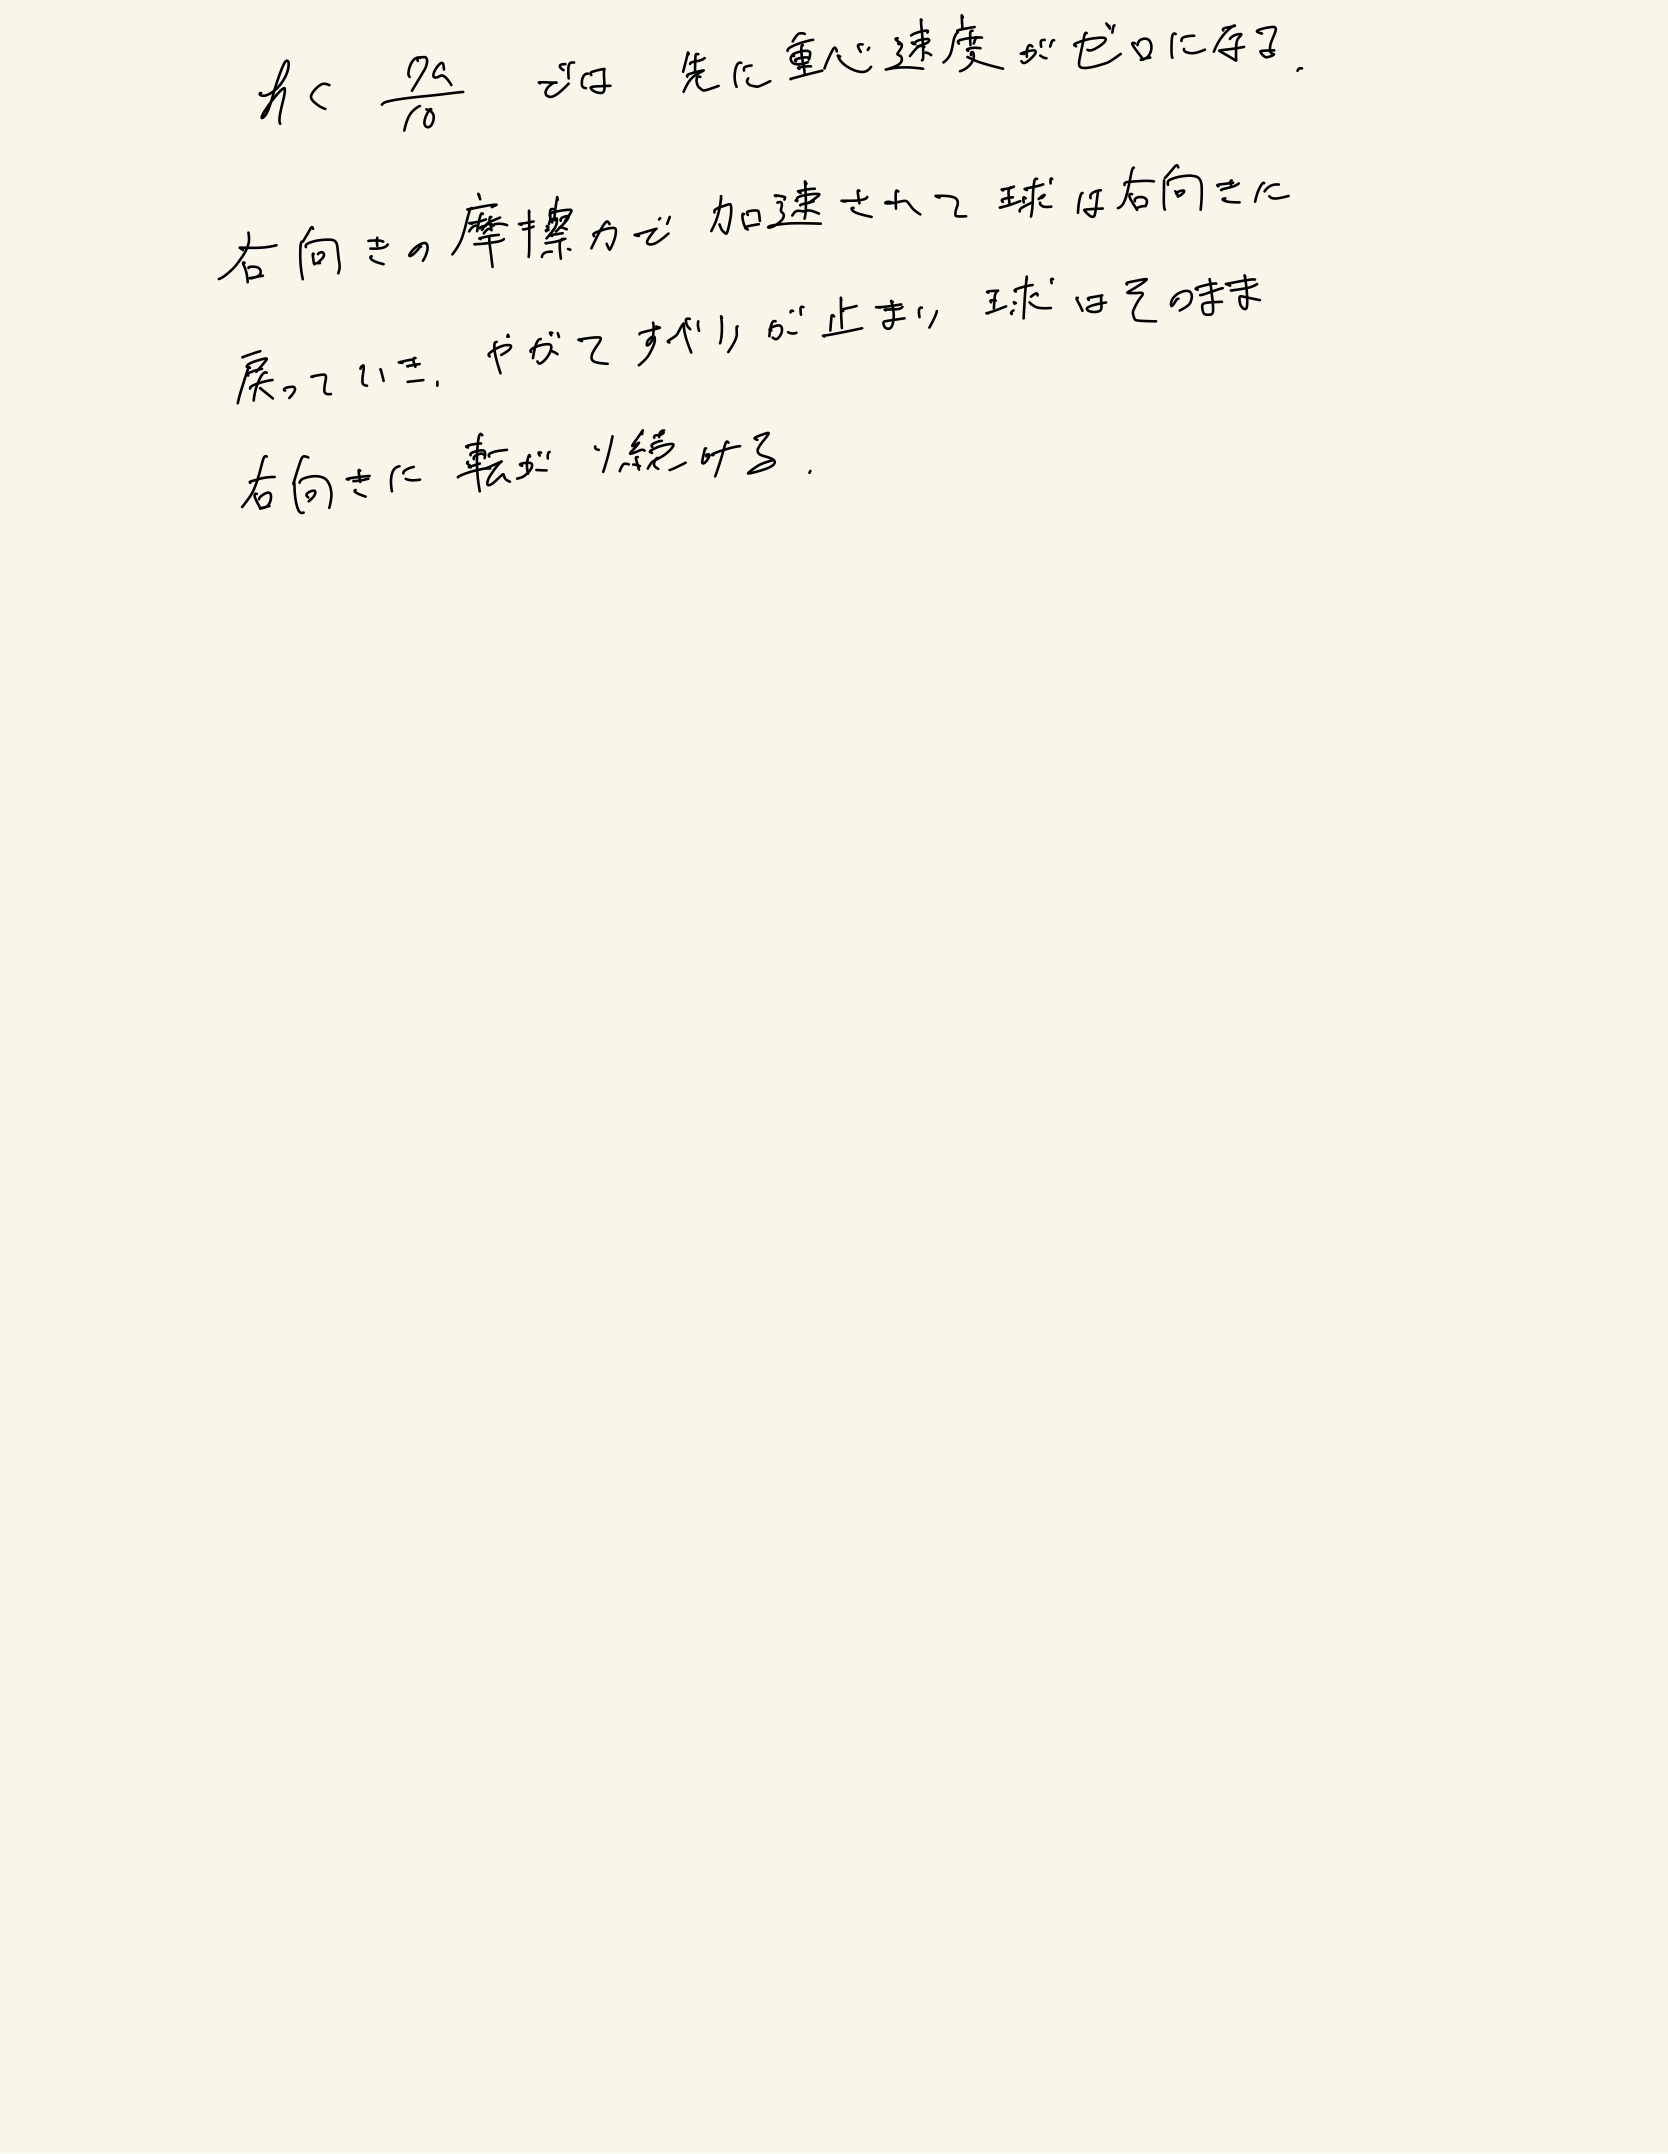 h < 7a/10 では 先に重心速度がゼロになる.
右向きの摩擦力で加速されて球は右向きに
戻っていき. やがてすべりが止まり球はそのまま
右向きに転がり続ける.